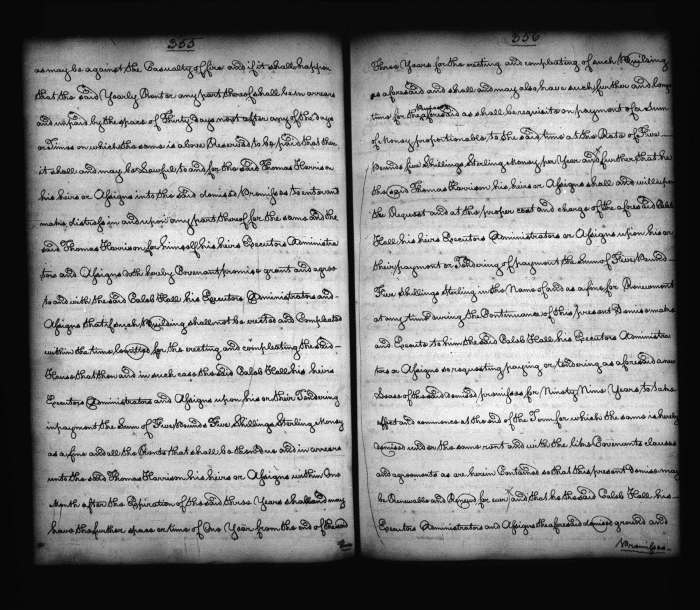 355
as may be against the Casualty of fire and if it shall happen
that the said Yearly Rent or any part thereof shall be in arrears
and unpaid by the space of Thirty days next after any of the days
or Times on which the same is above Reserved to be paid that then
it shall and may be Lawful to and for the said Thomas Harrison
his heirs or Assigns into the said demised Premisses to enter and
make distress in and upon any part thereof for the same and the
said Thomas Harrison for himself his heirs Executors Administra
tors and Assigns doth hereby Covenant promise grant and agree
to and with the said Caleb Hall his Executors Administrators and
Assigns that if such Building shall not be erected and Compleated
within the time for the erecting and compleating the said
House that then and in such case the said Caleb Hall his heirs
Executors Administrators and Assigns upon his or their Tendering
in payment the Sum of Five Pounds Five Shillings Sterling Money
as a fine and all the Rents that shall be then due and in arrears
unto the said Thomas Harrison his heirs or Assigns within One
Month after the Expiration of the said three Years shall and may
have the further space or time of One Year from the end of the said
Three
356
Three Years for the erecting and compleating of such Building
as aforesaid and shall and may also have such further and longer
time for the aforesaid as shall be requisite on payment of a Sum
of Money proportionable to the said time at the Rate of Five
Pounds five Shillings Sterling Money per Year and further that he
the said Thomas Harrison his heirs or Assigns shall and will upon
the Request and at the proper cost and charge of the aforesaid Caleb
Hall his heirs Executors Administrators or Assigns upon his or
their payment or Tendering of payment the Sum of Five Pounds
Five Shillings Sterling in the Name of and as a fine for Renewment
at any time during the Continuance of this present Demise make
and Execute to him the said Caleb Hall his Executors Administra
tors or Assigns so requesting paying or tendering as aforesaid a new
Lease of the said demised premisses for Ninety Nine Years, to take
effect and commence at the end of the Term for which the same is hereby
demised under the same rent and with the like Covenants clauses
and agreements as are herein Contained so that this present demise may
be Renewable and Renewed for ever and that he the said Caleb Hall his
Executors Administrators and Assigns the aforesaid demised ground and
Premisses